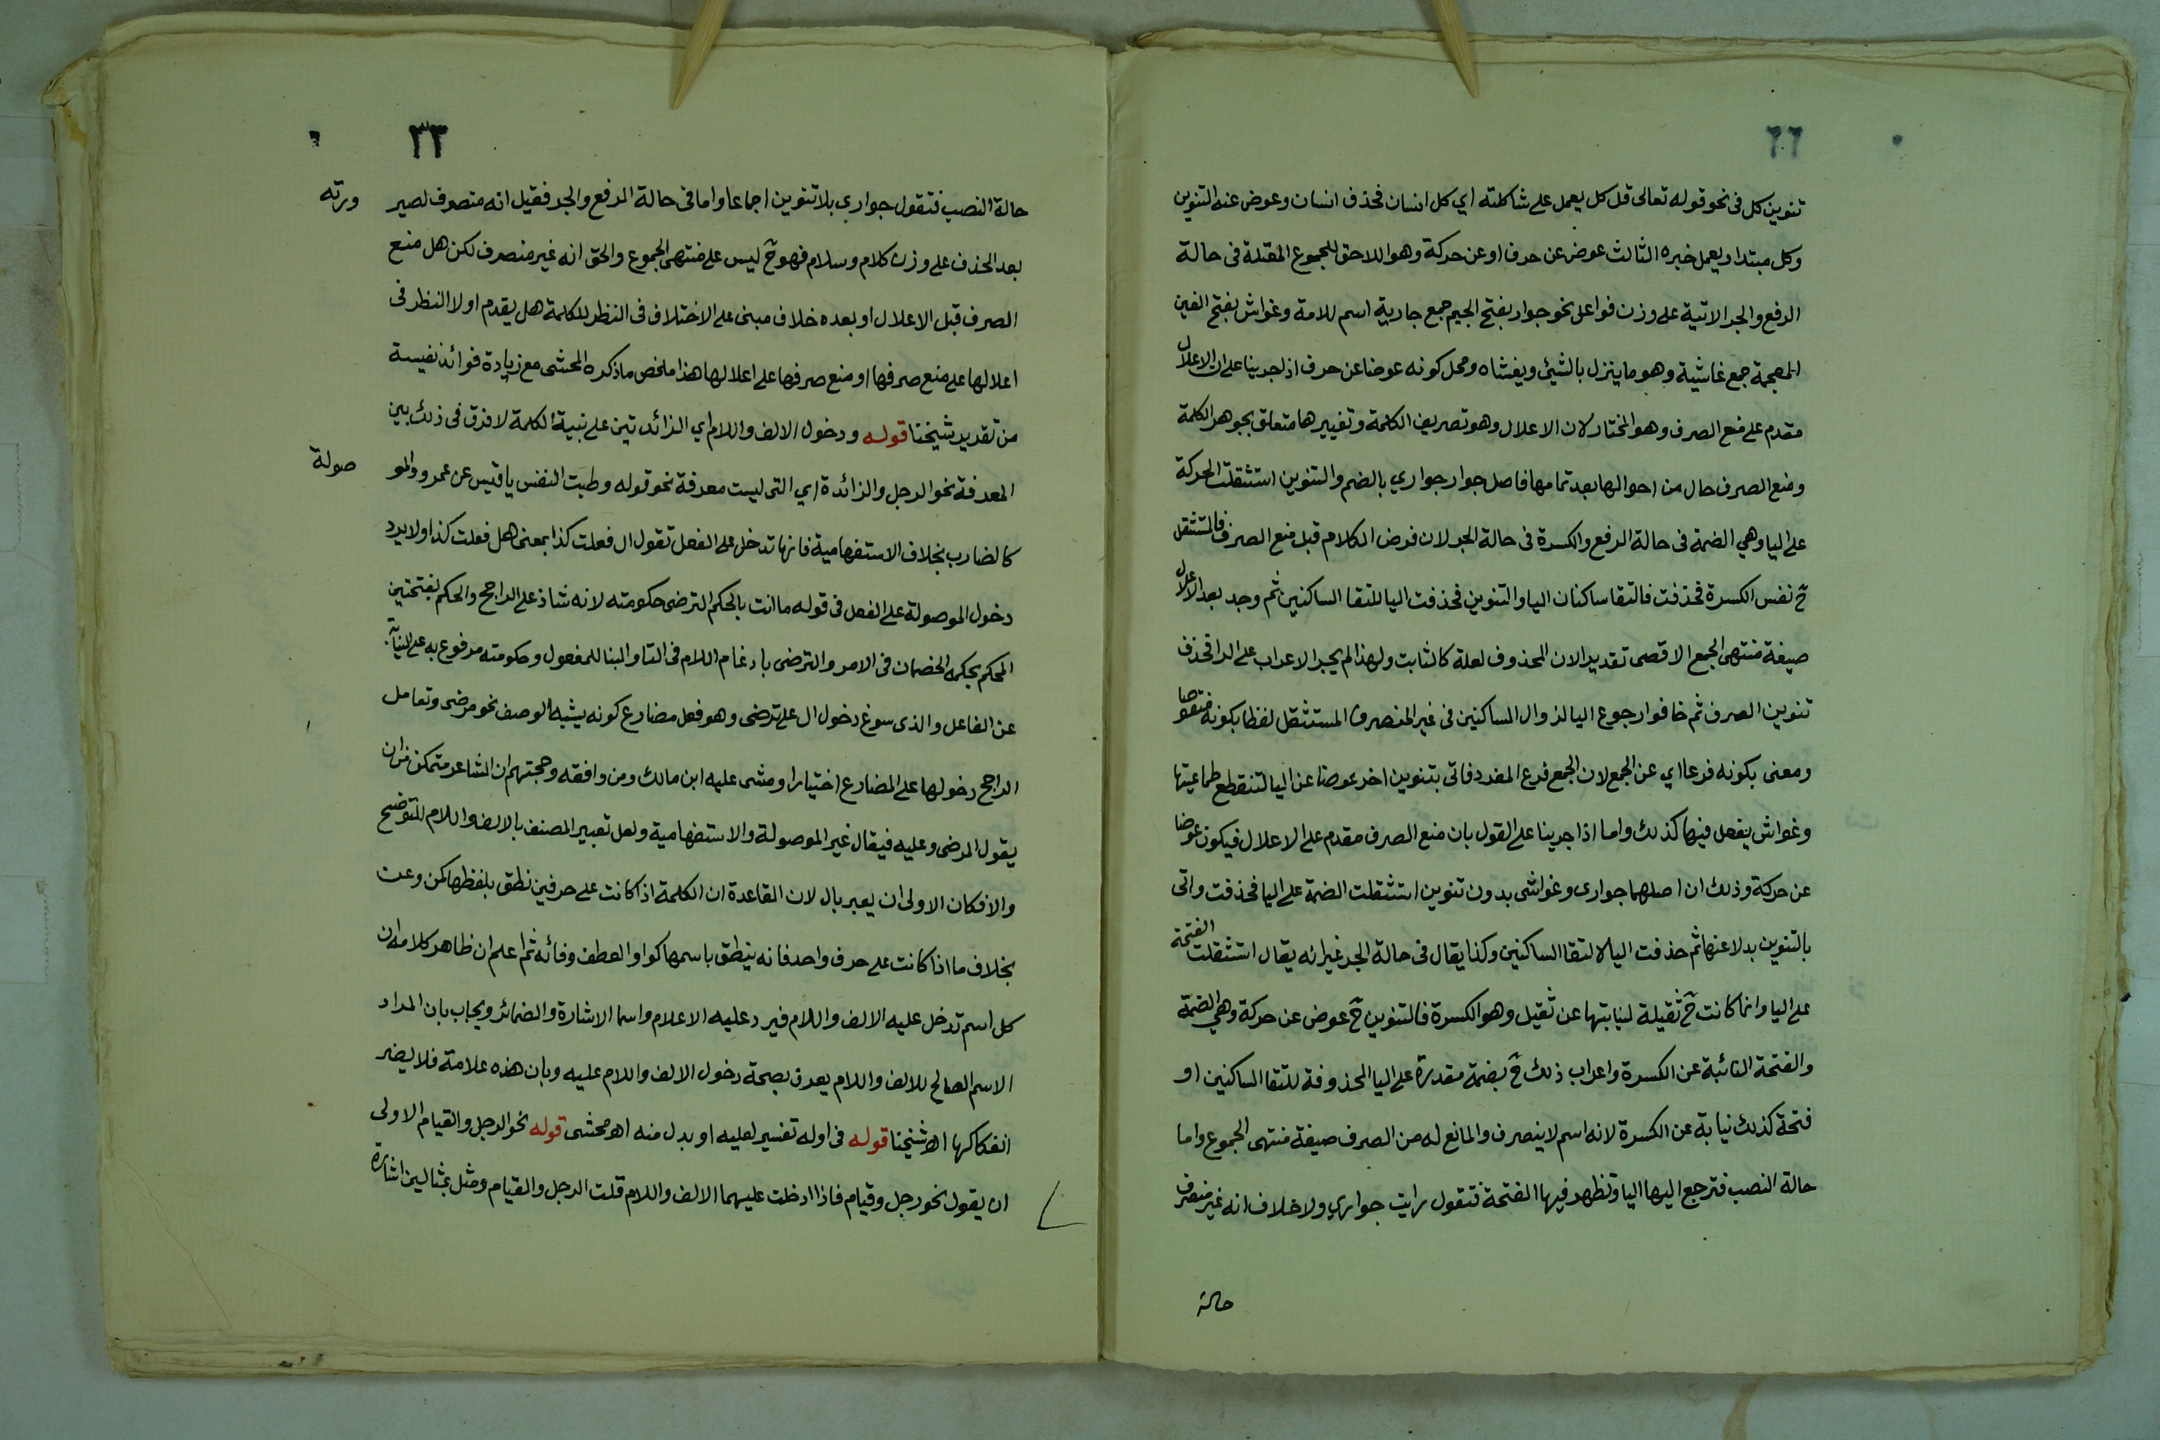 ٢٢
تنوين كل فى نحو قوله تعالى قل كل يعمل على شاكلته اي كل انسان فحذف انسان وعوض عنه التنوين
وكل مبتدا ويعمل خبره الثالث عوض عن حرف او عن حركة وهو اللاحق للجموع المعتلة فى حالة
الرفع والجر الاتية على وزن فواعل نحو جوار بفتح الجيم جمع جارية اسم للامة وغواش بفتح الغين
المعجمة جمع غاشية وهو ما ينزل بالشئ ويغشاه ومحل كونه عوضا عن حرف اذا جرينا على ان الاعلال
مقدم على منع الصرف وهو المختار لان الاعلال وهو تصريف الكلمة وتغييرها متعلق بجوهر الكلمة
ومنع الصرف حال من احوالها بعد تمامها فاصل جوار جواري بالضم والتنوين استثقلت الحركة
على اليا وهي الضمة فى حالة الرفع والكسرة فى حالة الجر لان فرض الكلام قبل منع الصرف فالمستثقل
ح نفس الكسرة فحذفت فالتقا ساكنان اليا والتنوين فحذفت اليا للتقا الساكنين ثم وجد بعد الاعلال
صيغة منتهى الجمع الاقصى تقديرا لان المحذوف لعلة كالثابت ولهذا لم يجر الاعراب على الرا فحذف
تنوين الصرف ثم خافوا رجوع اليا لزوال الساكنين فى غير المنصرف المستثقل لفظا بكونه منقوصا
ومعنى بكونه فرعا اي عن الجمع لان الجمع فرع المفرد فاتى بتنوين اخر عوضا عن اليا لتنقطع طماعيتها
وغواش يفعل فيها كذلك واما اذا جرينا على القول بان منع الصرف مقدم على الاعلال فيكون عوضا
عن حركة وذلك ان اصلهما جوارى وغواشى بدون تنوين استثقلت الضمة على اليا فحذفت واتى
بالتنوين بدلا عنها ثم حذفت اليا لالتقا الساكنين وكذا يقال فى حالة الجر غير انه يقال استثقلت الفتحة
على اليا وانما كانت ح ثقيلة لنيابتها عن ثقيل وهو الكسرة فالتنوين ح عوض عن حركة وهي الضمة
والفتحة النائبة عن الكسرة واعراب ذلك ح بضمة مقدرة على اليا المحذوفة للتقا الساكنين او
فتحة كذلك نيابة عن الكسرة لانه اسم لا ينصرف والمانع له من الصرف صيغة منتهى الجموع واما
حالة النصب فترجع اليها اليا وتظهر فيها الفتحة فتقول رايت جواري ولا خلاف انه غير منصرف
حالة
٣٣
حالة النصب فتقول جواري بلا تنوين اجماعا واما فى حالة الرفع والجر فقيل انه منصرف لصير ورته
بعد الحذف على وزن كلام وسلام فهو ح ليس على منتهى الجموع والحق انه غير منصرف لكن هل منع
الصرف قبل الاعلال او بعده خلاف مبنى على الاختلاف فى النظر للكلمة هل يقدم اولا النظر فى
اعلالها على منع صرفها او منع صرفها على اعلالها هذا ملخص ما ذكره المحشى مع زيادة فوائد نفيسة
من تقدير شيخنا قوله ودخول الالف واللام اي الزائدتين على بنية الكلمة لا فرق فى ذلك بين
المعرفة نحو الرجل والزائدة اي التى ليست معرفة نحو قوله وطبت النفس يا قيس عن عمرو والمو صولة
كالضارب بخلاف الاستفهامية فانها تدخل على الفعل تقول ال فعلت كذا بمعنى هل فعلت كذا ولا يرد
دخول الموصولة على الفعل فى قوله ما انت بالحكم الترضى حكومته لانه شاذ على الراجح والحكم بفتحتين
المحكم يحكمه الخصمان فى الامر والترضى بادغام اللام فى التا والبنا للمفعول وحكومته مرفوع به على النيابة
عن الفاعل والذى سوغ دخول ال على ترضى وهو فعل مضارع كونه يشبه الوصف نحو مرضى وتعامل
الراجح دخولها على المضارع اختيارا ومشى عليه ابن مالك ومن وافقه وحجتهم ان الشاعر متمكن من ان
يقول المرضى وعليه فيقال غير الموصولة والاستفهامية ولعل تعبير المصنف بالالف واللام للتوضيح
والا فكان الاولى ان يعبر بال لان القاعدة ان الكلمة اذا كانت على حرفين نطق بلفظها كمن وعن
بخلاف ما اذا كانت على حرف واحد فانه ينطق باسمها كواو العطف وفائه ثم اعلم ان ظاهر كلامه ان
كل اسم تدخل عليه الالف واللام فيرد عليه الاعلام واسما الاشارة والضمائر ويجاب بان المراد
الاسم الصالح للالف واللام يعرف بصحة دخول الالف واللام عليه وبان هذه علامة فلا يضر
انفكاكها اه شيخنا قوله فى اوله تفسير لعليه او بدل منه اه محشى قوله نحو الرجل والقيام الاولى
ان يقول نحو رجل وقيام فاذا ادخلت عليهما الالف واللام قلت الرجل والقيام ومثل بمثالين اشارة